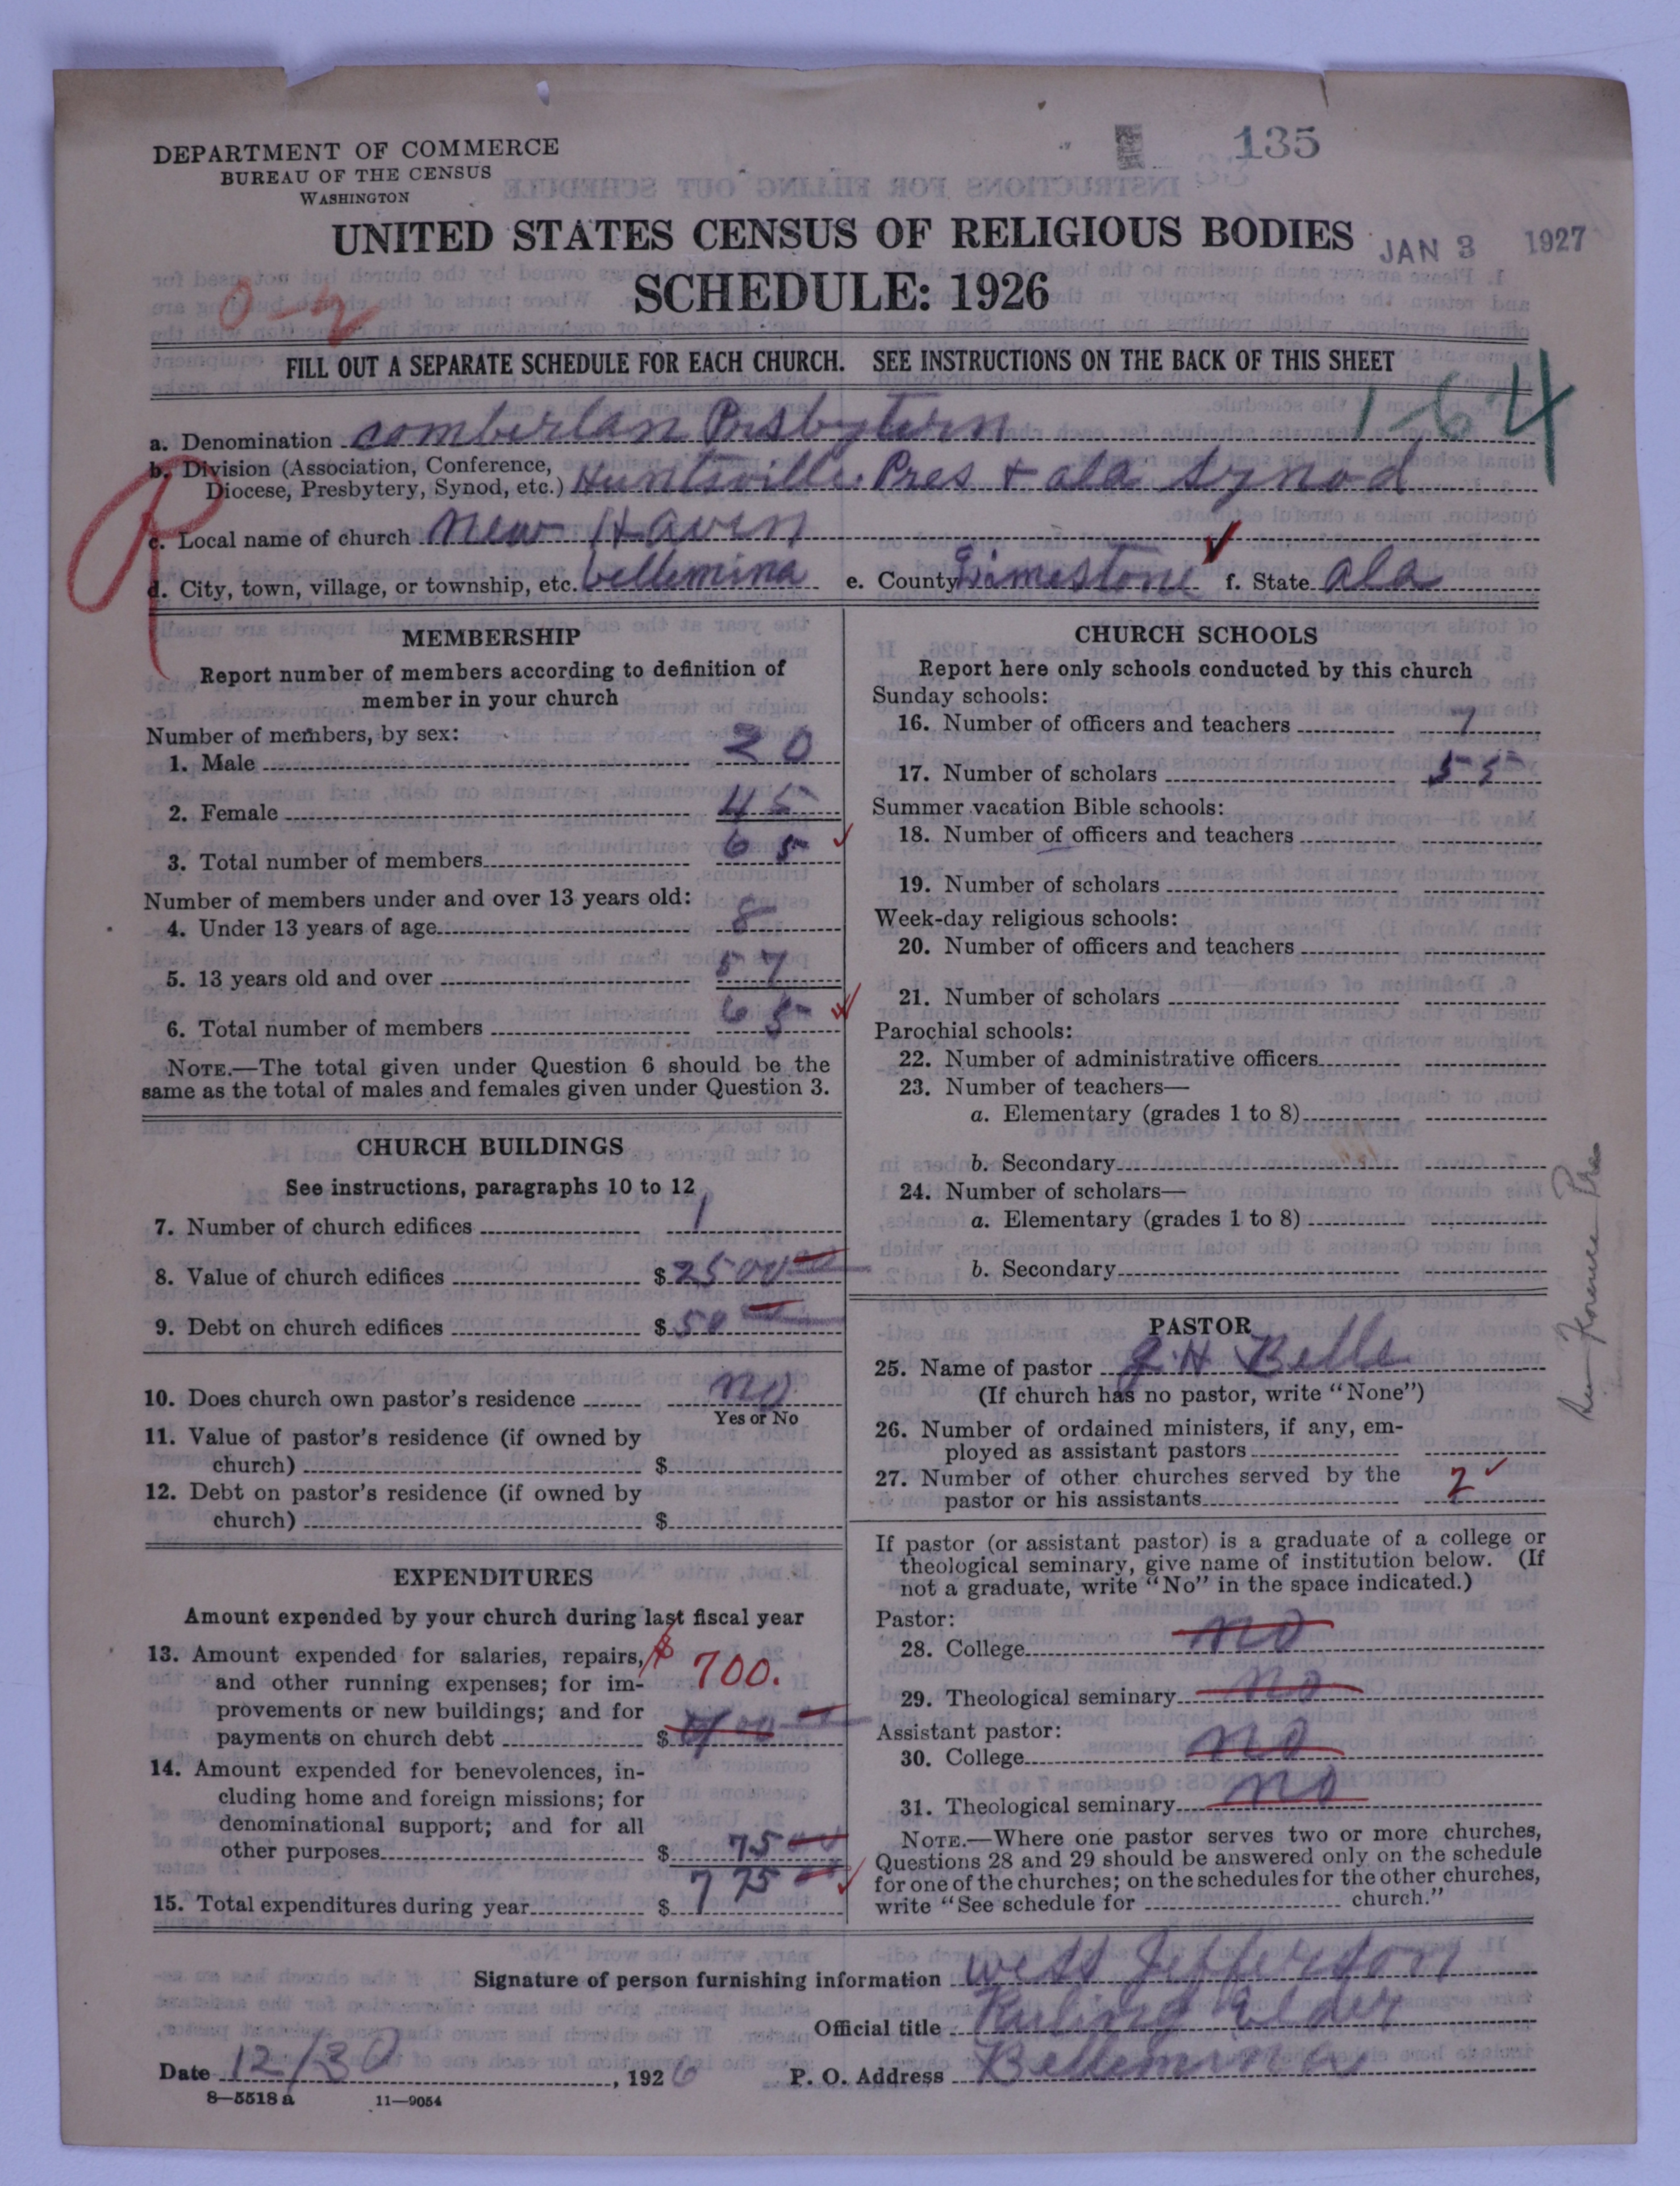 135
DEPARTMENT OF COMMERCE
BUREAU OF THE CENSUS
WASHINGTON
UNITED STATES CENSUS OF RELIGIOUS BODIES
JAN 3 1927
SCHEDULE: 1926
0-2
FILL OUT A SEPARATE SCHEDULE FOR EACH CHURCH. SEE INSTRUCTIONS ON THE BACK OF THIS SHEET
1-64
a. Denomination comberlan Presbytern
b. Division (Association, Conference,
Diocese, Presbytery, Synod, etc.) Huntsville Pres + ala Synod
R
c. Local name of church New Haven
d. City, town, village, or township, etc. bellemina e. County Limestone f. State ala
MEMBERSHIP
Report number of members according to definition of
member in your church
Number of members, by sex:
1. Male 20
2. Female 45
3. Total number of members 65
Number of members under and over 13 years old:
4. Under 13 years of age 8
5. 13 years old and over 57
6. Total number of members 65
NOTE.—The total given under Question 6 should be the
same as the total of males and females given under Question 3.
CHURCH BUILDINGS
See instructions, paragraphs 10 to 12
7. Number of church edifices 1
8. Value of church edifices $2500
9. Debt on church edifices $50
10. Does church own pastor's residence no
Yes or No
11. Value of pastor's residence (if owned by
church) $
12. Debt on pastor's residence (if owned by
church) $
EXPENDITURES
Amount expended by your church during last fiscal year
13. Amount expended for salaries, repairs, $ 700.
and other running expenses; for im-
provements or new buildings; and for
payments on church debt $
14. Amount expended for benevolences, in-
cluding home and foreign missions; for
denominational support; and for all
other purposes $ 75
15. Total expenditures during year $ 775
CHURCH SCHOOLS
Report here only schools conducted by this church
Sunday schools:
16. Number of officers and teachers 7
17. Number of scholars 55
Summer vacation Bible schools:
18. Number of officers and teachers
19. Number of scholars
Week-day religious schools:
20. Number of officers and teachers
21. Number of scholars
Parochial schools:
22. Number of administrative officers
23. Number of teachers—
a. Elementary (grades 1 to 8)
b. Secondary
24. Number of scholars—
a. Elementary (grades 1 to 8)
b. Secondary
PASTOR
25. Name of pastor J. H Belle
(If church has no pastor, write "None")
26. Number of ordained ministers, if any, em-
ployed as assistant pastors
27. Number of other churches served by the
pastor or his assistants 2
If pastor (or assistant pastor) is a graduate of a college or
theological seminary, give name of institution below. (If
not a graduate, write "No" in the space indicated.)
Pastor:
28. College no
29. Theological seminary no
Assistant pastor:
30. College no
31. Theological seminary no
NOTE.—Where one pastor serves two or more churches,
Questions 28 and 29 should be answered only on the schedule
for one of the churches; on the schedules for the other churches,
write "See schedule for church."
Florence Pres
Signature of person furnishing information Wess Jefferson
Official title Ruling Elder
Date 12/30, 1926 P. O. Address Bellemina
8—5518 a 11—9054